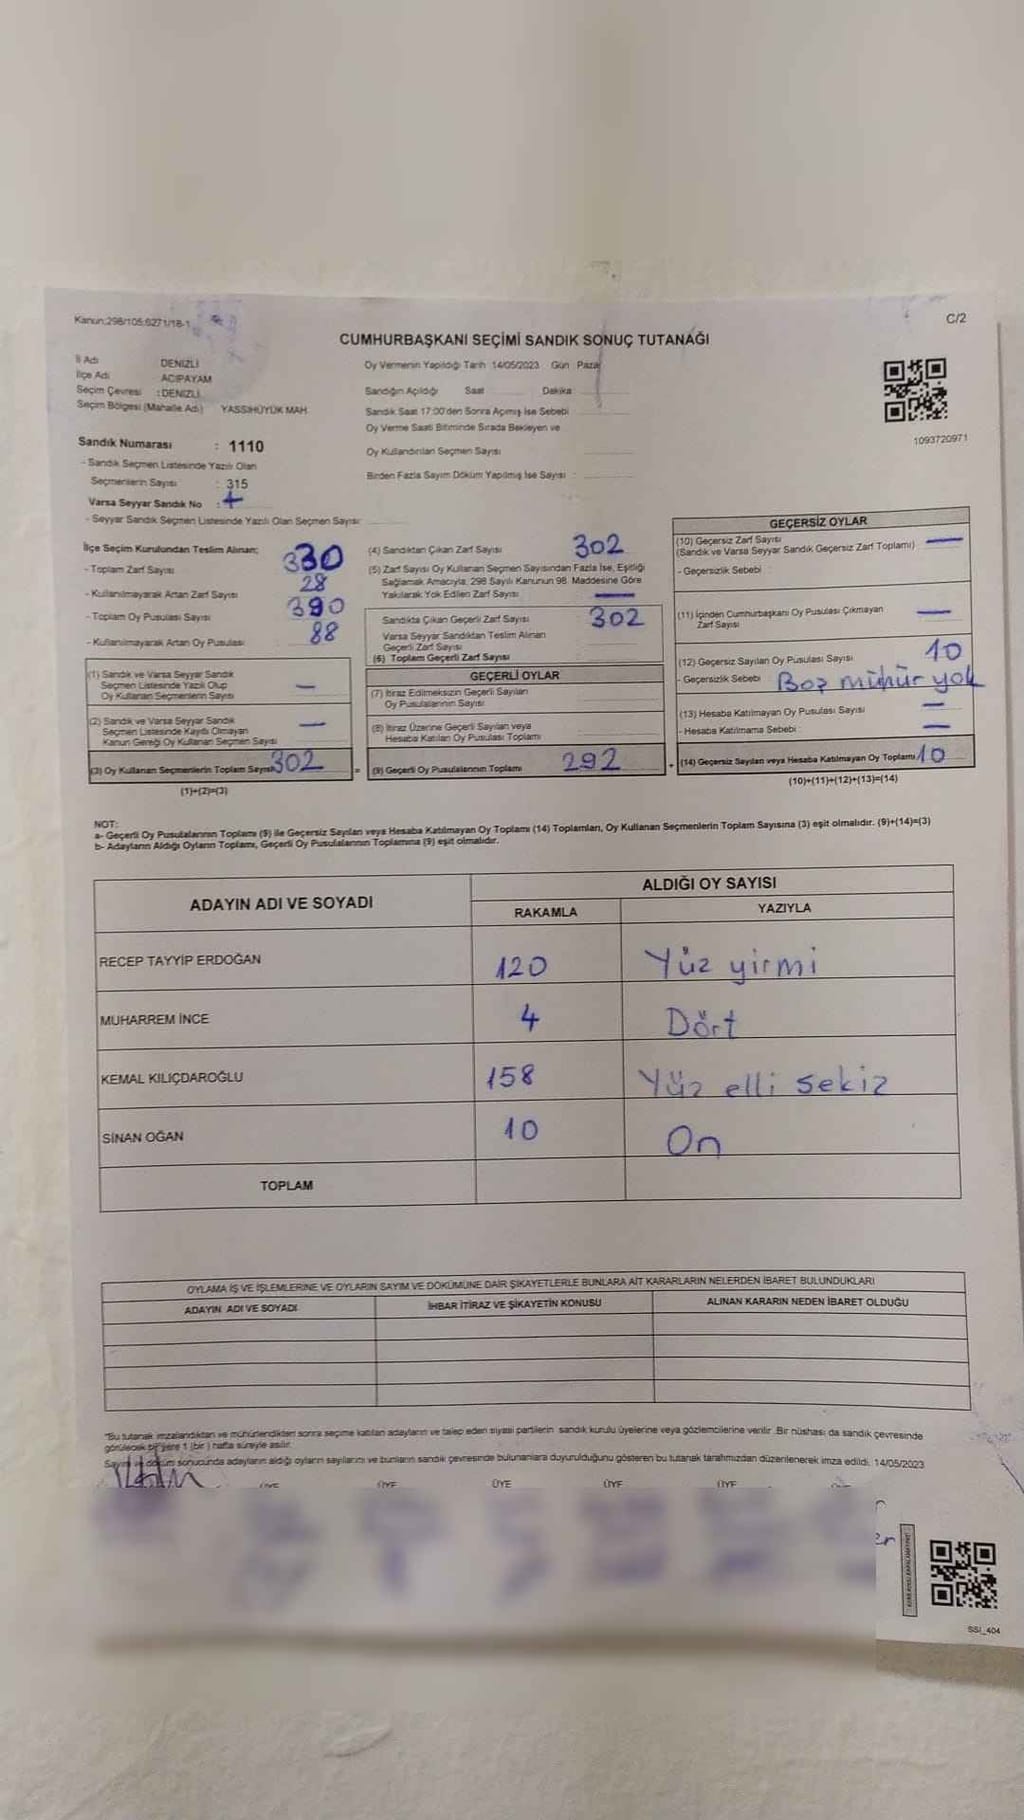 Kanun:298/105;6271/18-1
C/2
CUMHURBAŞKANI SEÇİMİ SANDIK SONUÇ TUTANAĞI
İl Adı DENİZLİ
İlçe Adı ACIPAYAM
Seçim Çevresi : DENİZLİ
Seçim Bölgesi (Mahalle Adı) YASSIHÜYÜK MAH.
Oy Vermenin Yapıldığı Tarih 14/05/2023 Gün Pazar
Sandığın Açıldığı Saat Dakika
Sandık Saat 17:00'den Sonra Açımış İse Sebebi
Oy Verme Saati Bitiminde Sırada Bekleyen ve
Oy Kullandırılan Seçmen Sayısı
Birden Fazla Sayım Döküm Yapılmış İse Sayısı :
1093720971
Sandık Numarası : 1110
- Sandık Seçmen Listesinde Yazılı Olan
Seçmenlerin Sayısı : 315
Varsa Seyyar Sandık No :
- Seyyar Sandık Seçmen Listesinde Yazılı Olan Seçmen Sayısı
İlçe Seçim Kurulundan Teslim Alınan;
- Toplam Zarf Sayısı 330
- Kullanılmayarak Artan Zarf Sayısı 28
- Toplam Oy Pusulası Sayısı 390
- Kullanılmayarak Artan Oy Pusulası 88
(1) Sandık ve Varsa Seyyar Sandık
Seçmen Listesinde Yazılı Olup
Oy Kullanan Seçmenlerin Sayısı —
(2) Sandık ve Varsa Seyyar Sandık
Seçmen Listesinde Kayıtlı Olmayan
Kanun Gereği Oy Kullanan Seçmen Sayısı —
(3) Oy Kullanan Seçmenlerin Toplam Sayısı 302
(1)+(2)=(3)
(4) Sandıktan Çıkan Zarf Sayısı 302
(5) Zarf Sayısı Oy Kullanan Seçmen Sayısından Fazla İse, Eşitliği
Sağlamak Amacıyla, 298 Sayılı Kanunun 98. Maddesine Göre
Yakılarak Yok Edilen Zarf Sayısı —
Sandıkta Çıkan Geçerli Zarf Sayısı 302
Varsa Seyyar Sandıktan Teslim Alınan
Geçerli Zarf Sayısı
(6) Toplam Geçerli Zarf Sayısı
GEÇERLİ OYLAR
(7) İtiraz Edilmeksizin Geçerli Sayılan
Oy Pusulalarının Sayısı
(8) İtiraz Üzerine Geçerli Sayılan veya
Hesaba Katılan Oy Pusulası Toplamı
= (9) Geçerli Oy Pusulalarının Toplamı 292
GEÇERSİZ OYLAR
(10) Geçersiz Zarf Sayısı
(Sandık ve Varsa Seyyar Sandık Geçersiz Zarf Toplamı) —
- Geçersizlik Sebebi :
(11) İçinden Cumhurbaşkanı Oy Pusulası Çıkmayan
Zarf Sayısı —
(12) Geçersiz Sayılan Oy Pusulası Sayısı 10
- Geçersizlik Sebebi Boş mühür yok
(13) Hesaba Katılmayan Oy Pusulası Sayısı —
- Hesaba Katılmama Sebebi —
+ (14) Geçersiz Sayılan veya Hesaba Katılmayan Oy Toplamı 10
(10)+(11)+(12)+(13)=(14)
NOT:
a- Geçerli Oy Pusulalarının Toplamı (9) ile Geçersiz Sayılan veya Hesaba Katılmayan Oy Toplamı (14) Toplamları, Oy Kullanan Seçmenlerin Toplam Sayısına (3) eşit olmalıdır. (9)+(14)=(3)
b- Adayların Aldığı Oyların Toplamı, Geçerli Oy Pusulalarının Toplamına (9) eşit olmalıdır.
ADAYIN ADI VE SOYADI
ALDIĞI OY SAYISI
RAKAMLA YAZIYLA
RECEP TAYYİP ERDOĞAN 120 Yüz yirmi
MUHARREM İNCE 4 Dört
KEMAL KILIÇDAROĞLU 158 Yüz elli sekiz
SİNAN OĞAN 10 On
TOPLAM
OYLAMA İŞ VE İŞLEMLERİNE VE OYLARIN SAYIM VE DÖKÜMÜNE DAİR ŞİKAYETLERLE BUNLARA AİT KARARLARIN NELERDEN İBARET BULUNDUKLARI
ADAYIN ADI VE SOYADI İHBAR İTİRAZ VE ŞİKAYETİN KONUSU ALINAN KARARIN NEDEN İBARET OLDUĞU
*Bu tutanak imzalandıktan ve mühürlendikten sonra seçime katılan adayların ve talep eden siyasi partilerin sandık kurulu üyelerine veya gözlemcilerine verilir. Bir nüshası da sandık çevresinde
görülecek bir yere 1 (bir) hafta süreyle asılır.
Sayım ve döküm sonucunda adayların aldığı oyların sayılarını ve bunların sandık çevresinde bulunanlara duyurulduğunu gösteren bu tutanak tarafımızdan düzenlenerek imza edildi. 14/05/2023
ÜYE ÜYE ÜYE ÜYE ÜYE
SSI_404